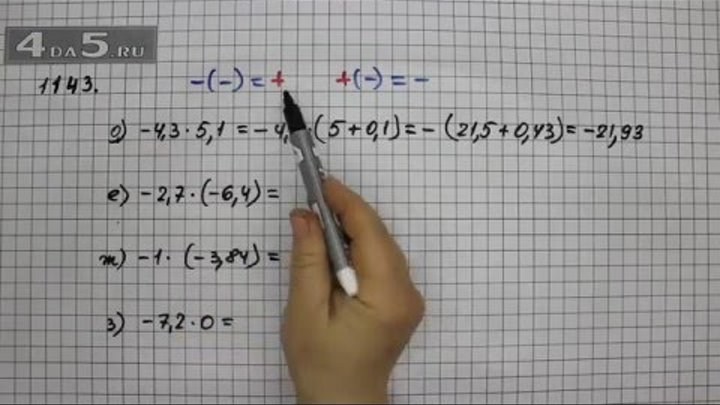 4DA5.RU
1143. -(-) = + +(-) = -
д) -4,3 · 5,1 = -4, · (5+0,1) = - (21,5+0,43) = -21,93
е) -2,7 · (-6,4) =
ж) -1 · (-3,84) =
з) -7,2 · 0 =